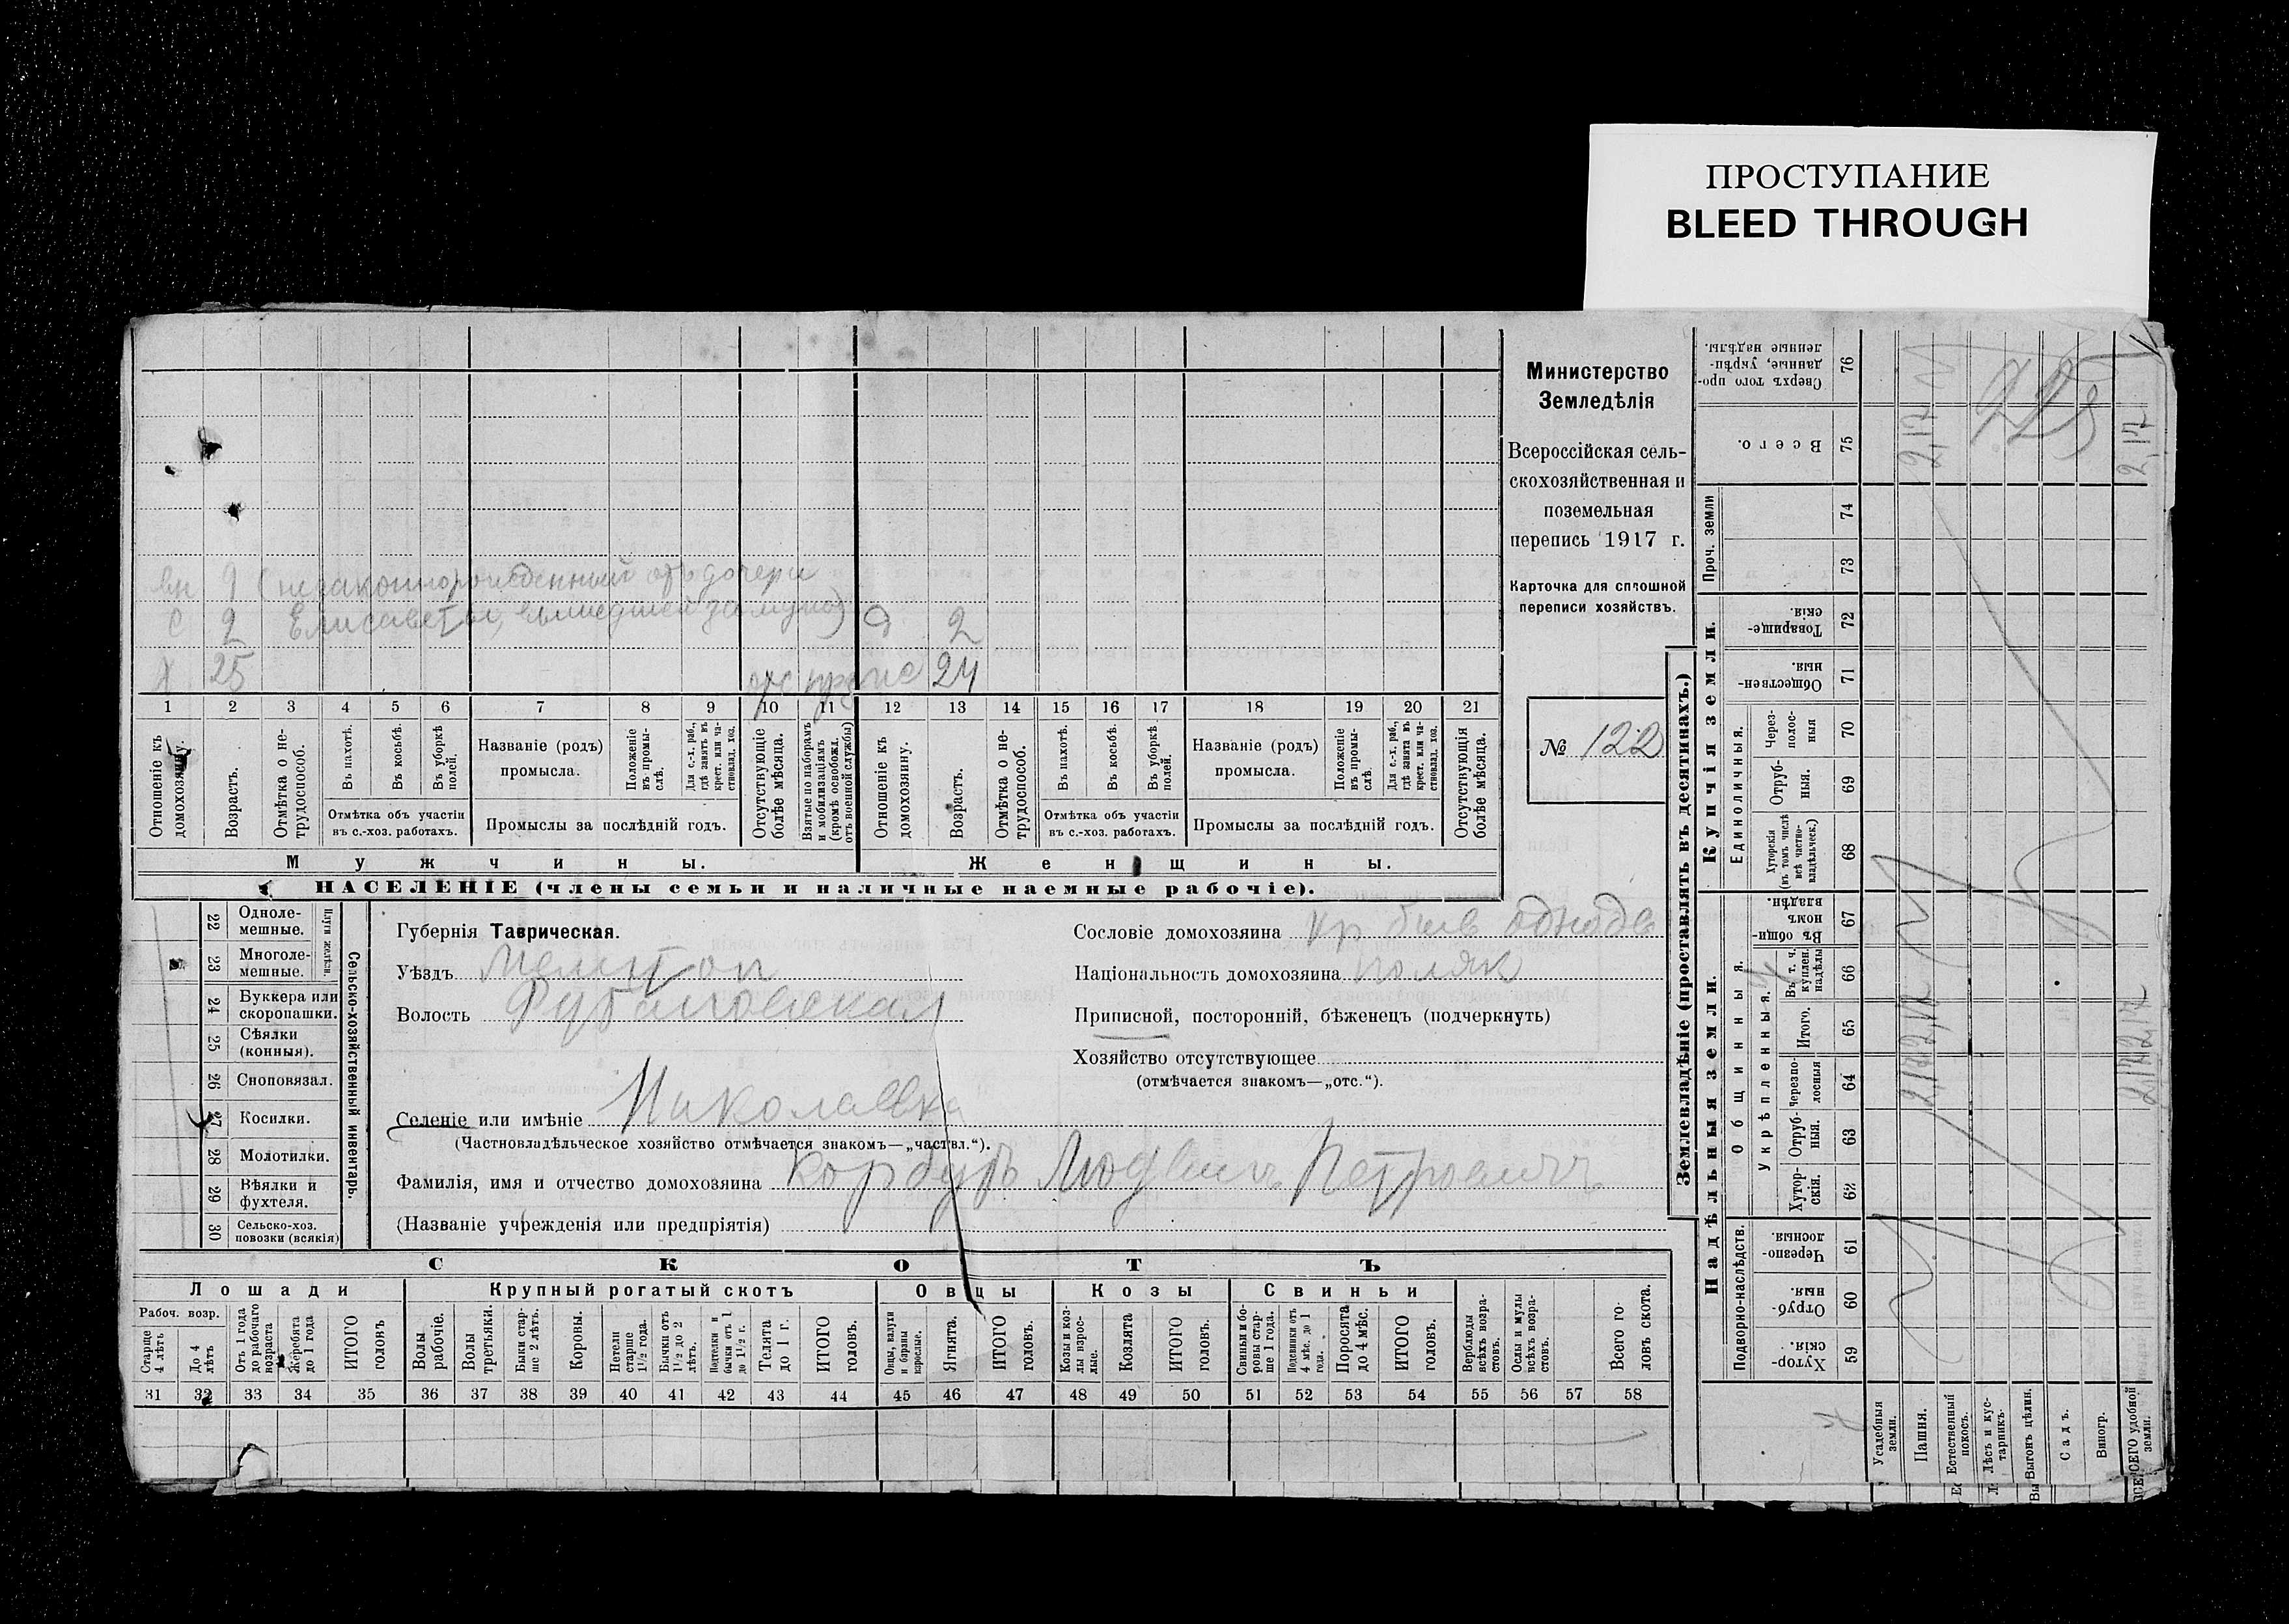 ПРОСТУПАНИЕ
BLEED THROUGH
Министерство
Земледѣлія
Всероссійская сель-
скохозяйственная и
поземельная
перепись 1917 г.
Карточка для сплошной
переписи хозяйствъ.
№ 122
вн 9 (незаконнорожденный отъ дочери
с 2 Елисаветы, вышедшей замужъ) д 2
х 25 24
1 2 3 4 5 6 7 8 9 10 11 12 13 14 15 16 17 18 19 20 21
Отношеніе къ домохозяину.
Возрастъ.
Отмѣтка о не-трудоспособ.
Въ пахотѣ.
Въ косьбѣ.
Въ уборкѣ полей.
Отмѣтка объ участіи
въ с.-хоз. работахъ.
Названіе (родъ)
промысла.
Положеніе въ промы-слѣ.
Для с.-х. раб., гдѣ занятъ въ крест. или ча-стновлад. хоз.
Промыслы за послѣдній годъ.
Отсутствующіе болѣе мѣсяца.
Взятые по наборамъ и мобилизаціямъ (кромѣ освобожд. отъ военной службы)
Отношеніе къ домохозяину.
Возрастъ.
Отмѣтка о не-трудоспособ.
Въ пахотѣ.
Въ косьбѣ.
Въ уборкѣ полей.
Отмѣтка объ участіи
въ с.-хоз. работахъ.
Названіе (родъ)
промысла.
Положеніе въ промы-слѣ.
Для с.-х. раб., гдѣ занята въ крест. или ча-стновлад. хоз.
Промыслы за послѣдній годъ.
Отсутствующія болѣе мѣсяца.
Мужчины.
Женщины.
НАСЕЛЕНІЕ (члены семьи и наличные наемные рабочіе).
22 Одноле-мешные.
23 Многоле-мешные.
Плуги желѣзн.
24 Буккера или скоропашки.
25 Сѣялки (конныя).
26 Сноповязал.
27 Косилки.
28 Молотилки.
29 Вѣялки и фухтеля.
30 Сельско-хоз. повозки (всякія)
Сельско-хозяйственный инвентарь.
Губернія Таврическая.
Уѣздъ Мелитоп
Волость
Селеніе или имѣніе Николаевка
(Частновладѣльческое хозяйство отмѣчается знакомъ—„частвл.“).
Фамилія, имя и отчество домохозяина Корбутъ Людвигъ Петровичъ
(Названіе учрежденія или предпріятія)
Сословіе домохозяина кр быв однодв
Національность домохозяина поляк
Приписной, посторонній, бѣженецъ (подчеркнуть)
Хозяйство отсутствующее
(отмѣчается знакомъ—„отс.“).
СКОТЪ
Лошади
Крупный рогатый скотъ
Овцы
Козы
Свиньи
Рабоч. возр.
Старше 4 лѣтъ
До 4 лѣтъ
Отъ 1 года до рабочаго возраста
Жеребята до 1 года
ИТОГО головъ
Волы рабочіе.
Волы третьяки.
Быки стар-ше 2 лѣтъ.
Коровы.
Нетели старше 1½ года.
Бычки отъ 1½ до 2 лѣтъ.
Нетелки и бычки отъ 1 до 1½ г.
Телята до 1 г.
ИТОГО головъ.
Овцы, валухи и бараны взрослые.
Ягнята.
ИТОГО головъ.
Козы и коз-лы взрос-лые.
Козлята
ИТОГО головъ.
Свиньи и бо-ровы стар-ше 1 года.
Подсвинки отъ 4 мѣс. до 1 года.
Поросята до 4 мѣс.
ИТОГО головъ.
Верблюды всѣхъ возра-стовъ.
Ослы и мулы всѣхъ возра-стовъ.
Всего го-ловъ скота.
31 32 33 34 35 36 37 38 39 40 41 42 43 44 45 46 47 48 49 50 51 52 53 54 55 56 57 58
Землевладѣніе (проставлять въ десятинахъ.)
Купчія земли.
Надѣльныя земли.
Сверхъ того про-данные, укрѣп-ленные надѣлы. 76
Всего. 75 2,17 2,17
Проч. земли 74 73
Товарище-скія. 72
Обществен-ныя. 71
Единоличныя.
Через-полос-ныя 70
Отруб-ныя. 69
Хуторскія (въ томъ числѣ всѣ частно-владѣльческ.) 68
Общинныя.
Въ общин-номъ владѣн. 67
Укрѣпленныя.
Въ т. ч. куплен. надѣлы 66
Итого. 65
Черезпо-лосныя 64
Отруб-ныя. 63
Хутор-скія. 62
Подворно-наслѣдств.
Черезпо-лосныя. 61
Отруб-ныя. 60
Хутор-скія. 59
Усадебныя земли.
Пашня.
Естественный покосъ.
Лѣсъ и кус-тарникъ.
Выгонъ цѣлин.
Садъ.
Виногр.
ВСЕГО удобной земли.